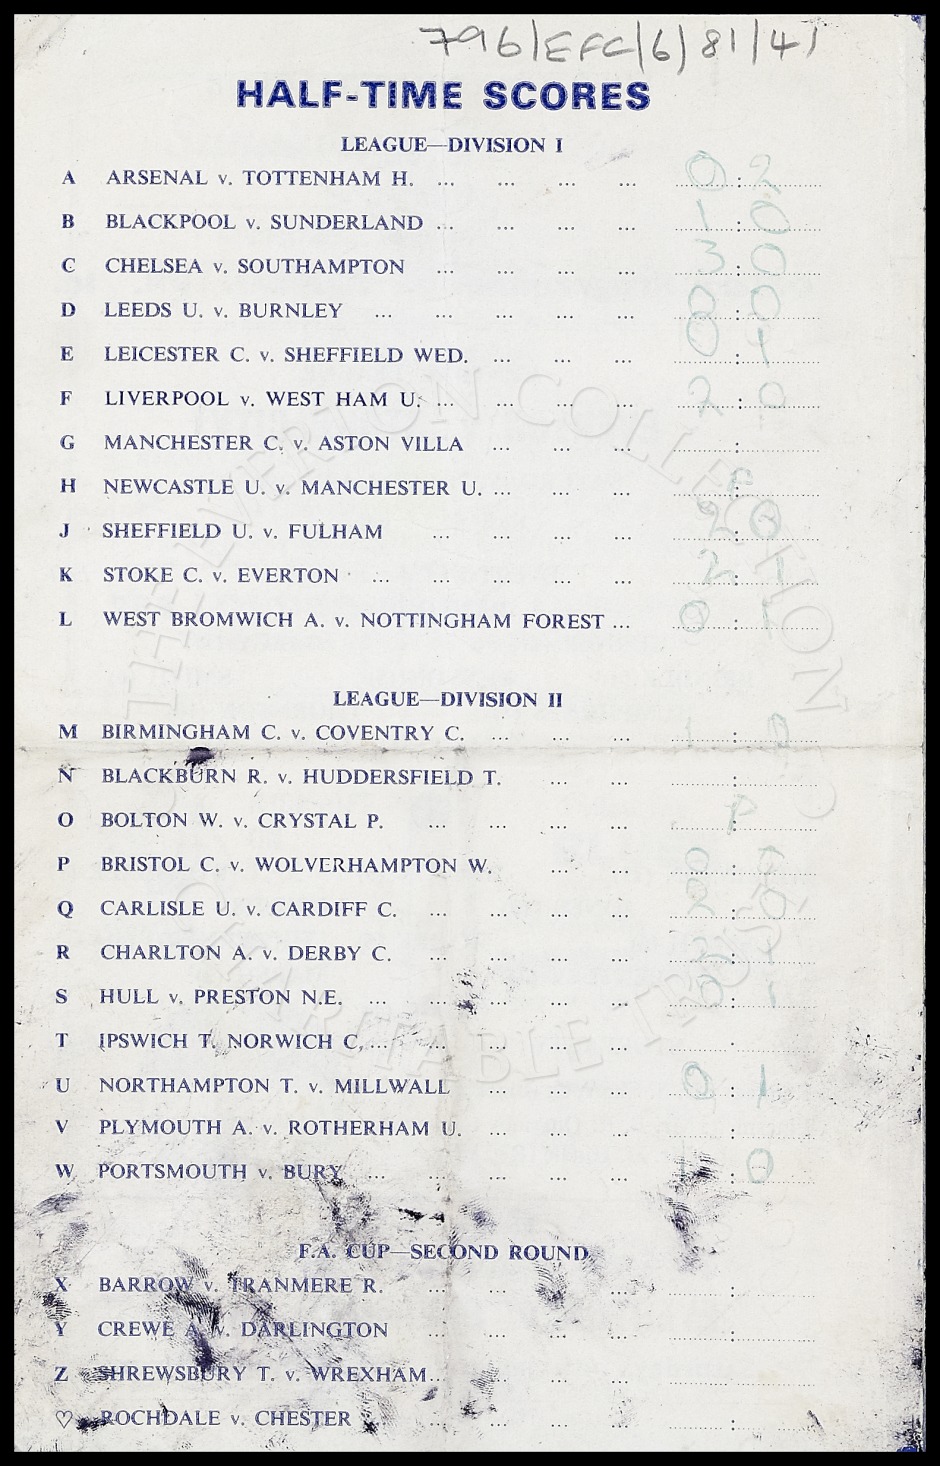 796/EFC/6/81/41
HALF-TIME SCORES
LEAGUE—DIVISION I
A ARSENAL v. TOTTENHAM H. ... ... ... ... 0 : 2
B BLACKPOOL v. SUNDERLAND ... ... ... ... 1 : 0
C CHELSEA v. SOUTHAMPTON ... ... ... ... 3 : 0
D LEEDS U. v. BURNLEY ... ... ... ... ... 0 : 0
E LEICESTER C. v. SHEFFIELD WED. ... ... ... 0 : 1
F LIVERPOOL v. WEST HAM U. ... ... ... ... 2 : 0
G MANCHESTER C. v. ASTON VILLA ... ... ... :
H NEWCASTLE U. v. MANCHESTER U. ... ... ... : P
J SHEFFIELD U. v. FULHAM ... ... ... ... 2 : 0
K STOKE C. v. EVERTON ... ... ... ... ... 2 : 1
L WEST BROMWICH A. v. NOTTINGHAM FOREST ... 0 : 1
LEAGUE—DIVISION II
M BIRMINGHAM C. v. COVENTRY C. ... ... ... 1 : 0
N BLACKBURN R. v. HUDDERSFIELD T. ... ... :
O BOLTON W. v. CRYSTAL P. ... ... ... ... P
P BRISTOL C. v. WOLVERHAMPTON W. ... ... 0 :
Q CARLISLE U. v. CARDIFF C. ... ... ... ... 2 : 0
R CHARLTON A. v. DERBY C. ... ... ... ... : 1
S HULL v. PRESTON N.E. ... ... ... ... ... 0 : 1
T IPSWICH T. NORWICH C. ... ... ... ... ... :
U NORTHAMPTON T. v. MILLWALL ... ... ... 0 : 1
V PLYMOUTH A. v. ROTHERHAM U. ... ... ... :
W PORTSMOUTH v. BURY ... ... ... ... ... : 0
F.A. CUP—SECOND ROUND
X BARROW v. TRANMERE R. ... ... ... ... :
Y CREWE A. v. DARLINGTON ... ... ... ... :
Z SHREWSBURY T. v. WREXHAM ... ... ... ... :
♡ ROCHDALE v. CHESTER ... ... ... ... ... :
THE EVERTON COLLECTION
CHARITABLE TRUST